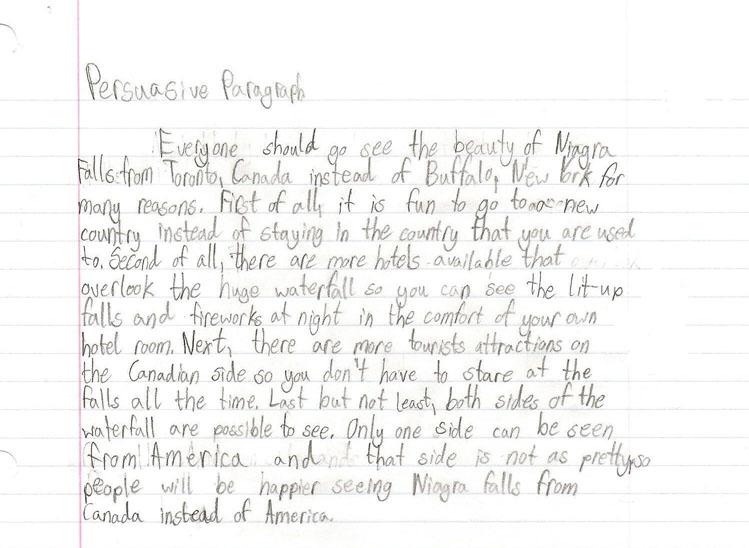 Persuasive Paragraph
Everyone should go see the beauty of Niagra
Falls from Toronto, Canada instead of Buffalo, New York for
many reasons. First of all, it is fun to go to a new
country instead of staying in the country that you are used
to. Second of all, there are more hotels available that
overlook the huge waterfall so you can see the lit-up
falls and fireworks at night in the comfort of your own
hotel room. Next, there are more tourists attractions on
the Canadian side so you don't have to stare at the
falls all the time. Last but not least, both sides of the
waterfall are possible to see. Only one side can be seen
from America and that side is not as pretty, so
people will be happier seeing Niagra falls from
Canada instead of America.